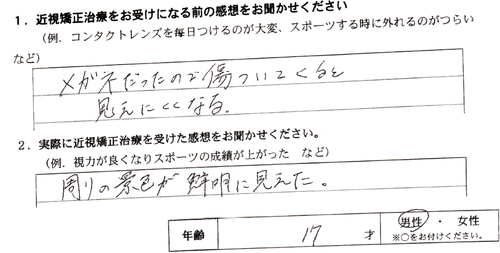 １．近視矯正治療をお受けになる前の感想をお聞かせください
（例．コンタクトレンズを毎日つけるのが大変、スポーツする時に外れるのがつらい
など）
メガネだったので傷ついてくると
見えにくくなる。
２．実際に近視矯正治療を受けた感想をお聞かせください。
（例．視力が良くなりスポーツの成績が上がった　など）
周りの景色が鮮明に見えた。
年齢 17 才 男性 ・ 女性
※○をお付けください。